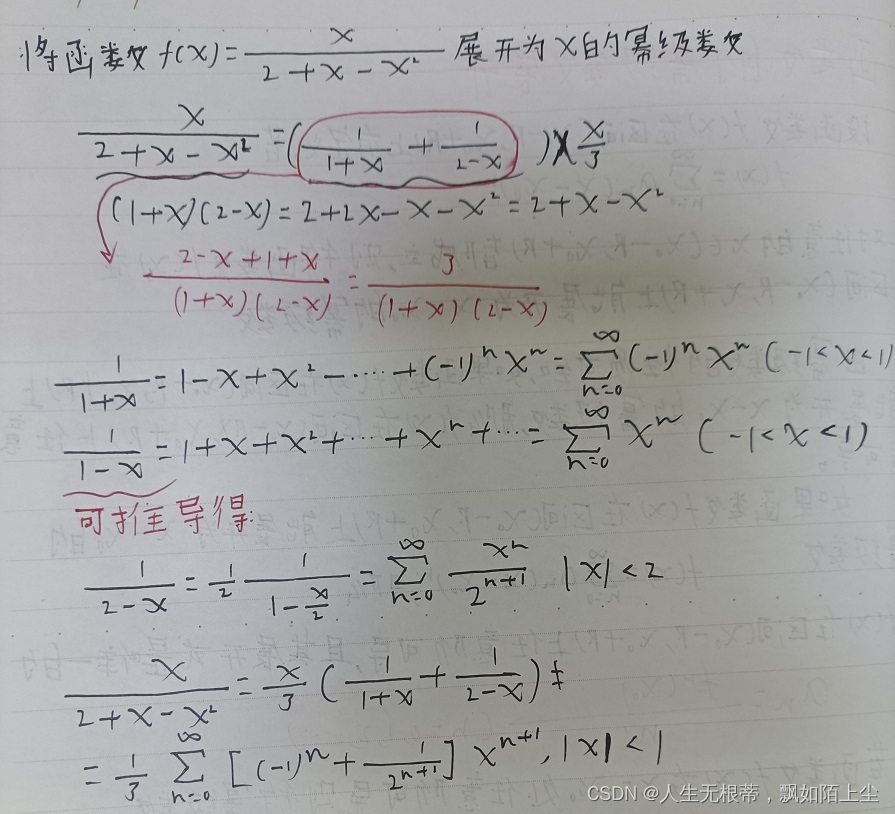 将函数 f(x) = x/(2+x-x²) 展开为x的幂级数
x/(2+x-x²) = (1/(1+x) + 1/(2-x)) × x/3
(1+x)(2-x) = 2+2x-x-x² = 2+x-x²
(2-x+1+x)/((1+x)(2-x)) = 3/((1+x)(2-x))
1/(1+x) = 1-x+x²-····+(-1)ⁿxⁿ = ∑_{n=0}^{∞} (-1)ⁿ xⁿ (-1<x<1)
1/(1-x) = 1+x+x²+···+xⁿ+··· = ∑_{n=0}^{∞} xⁿ (-1<x<1)
可推导得:
1/(2-x) = 1/2 · 1/(1-x/2) = ∑_{n=0}^{∞} xⁿ/2ⁿ⁺¹ |x|<2
x/(2+x-x²) = x/3 (1/(1+x) + 1/(2-x))
= 1/3 ∑_{n=0}^{∞} [(-1)ⁿ + 1/2ⁿ⁺¹] xⁿ⁺¹, |x|<1
CSDN @人生无根蒂，飘如陌上尘